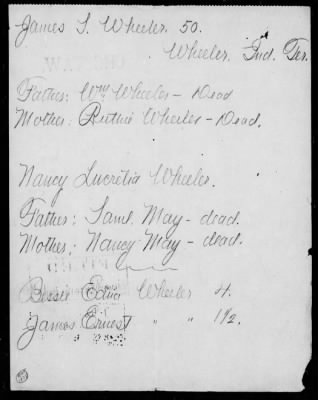 James S. Wheeler. 50.
Wheeler. Ind. Ter.
Father: Wm Wheeler - Dead
Mother: Ruthie Wheeler - Dead.
Nancy Lucretia Wheeler.
Father: Saml. May - dead.
Mother: Nancy May - dead.
Bessie Edna Wheeler 4.
James Ernest " " 1 1/2.